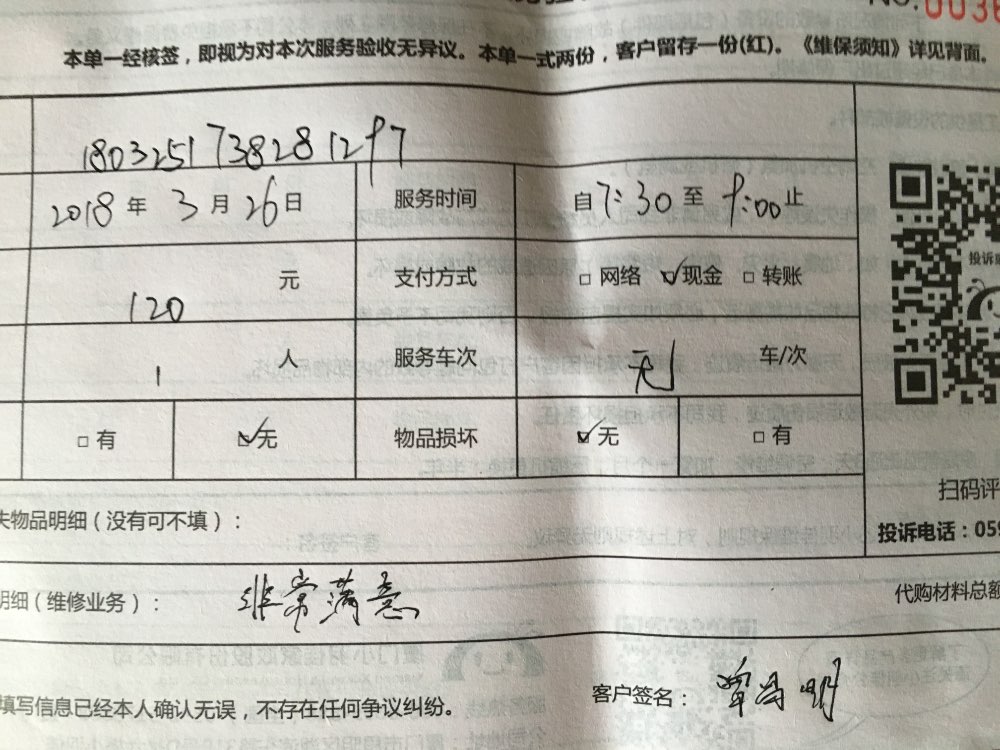 NO.0036
本单一经核签，即视为对本次服务验收无异议。本单一式两份，客户留存一份(红)。《维保须知》详见背面。
1803251738281297
2018 年 3 月 26 日 服务时间 自 7:30 至 9:00 止
120 元 支付方式 □ 网络 ☑ 现金 □ 转账
投诉
1 人 服务车次 无 车/次
□ 有 ☑ 无 物品损坏 ☑ 无 □ 有
扫码评
失物品明细（没有可不填）：
投诉电话：059
明细（维修业务）： 非常满意
代购材料总额
填写信息已经本人确认无误，不存在任何争议纠纷。 客户签名：